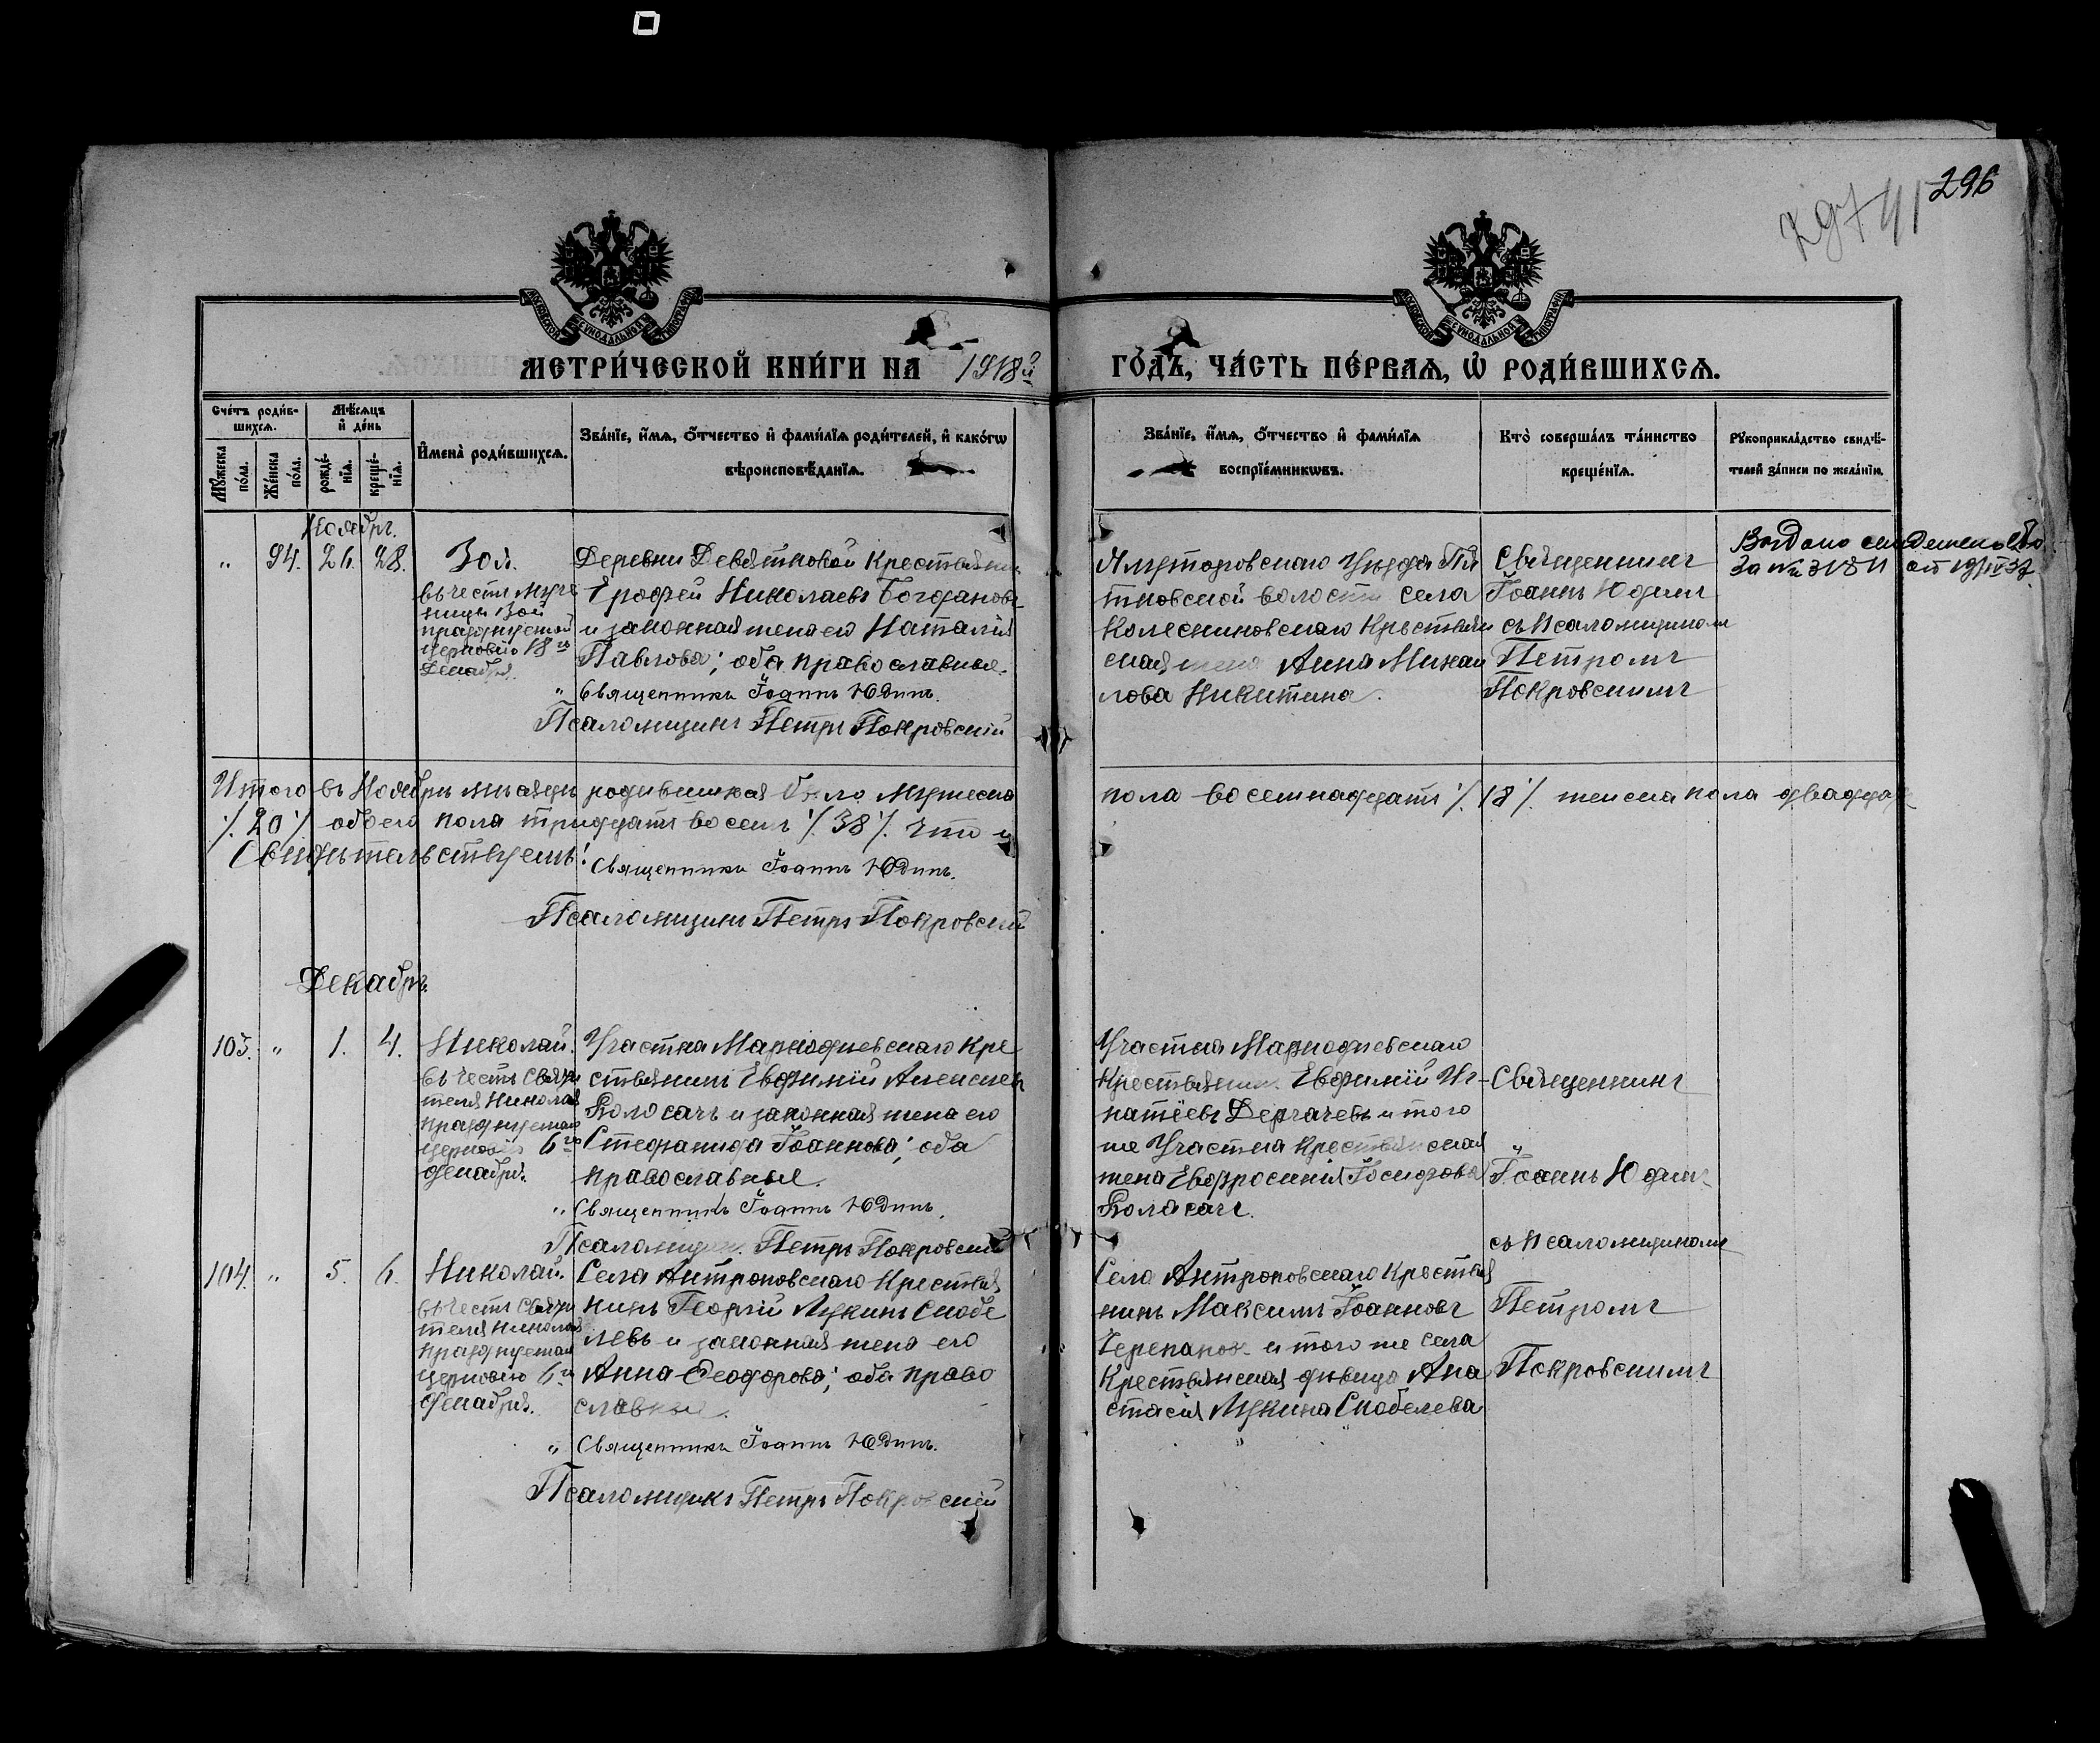 296
297 41
МОСКОВСКОЙ СΥНОДАЛЬНОЙ ТИПОГРАФІИ
МОСКОВСКОЙ СΥНОДАЛЬНОЙ ТИПОГРАФІИ
МЕТРИ́ЧЕСКОЙ КНИ́ГИ НА 1918й
ГО́ДЪ, ЧА́СТЬ ПЕ́РВАѦ, Ѡ҆ РОДИ́ВШИХСѦ.
Сче́тъ роди́в-
шихсѧ.
Мѣ́сѧцъ
и҆ де́нь
Мꙋ́жеска
по́ла.
Же́нска
по́ла.
рожде́-
нїѧ.
креще́-
нїѧ.
И҆мена̀ роди́вшихсѧ.
Зва́нїе, и҆́мѧ, ѻ҆́тчество и҆ фамі́лїѧ роди́телей, и҆ како́гѡ
вѣроисповѣ́данїѧ.
Зва́нїе, и҆́мѧ, ѻ҆́тчество и҆ фамі́лїѧ
воспрїе́мникѡвъ.
Кто̀ соверша́лъ та́инство
креще́нїѧ.
Рꙋкоприкла́дство свидѣ́-
телей за́писи по жела́нїю.
Ноябрь.
" 94. 26. 28. Зоя.
въ честь муче
ницы Зои
празднуемой
церковію 18го
Декабря.
Деревни Девятковой Крестьянин
Ерофей Николаевъ Богдановъ
и законная жена его Наталія
Павлова; оба православные.
" Священникъ Іоаннъ Юдинъ.
Псаломщикъ Петръ Покровскій
Ялуторовскаго Уѣзда Пя
тковской волости села
Колесниковскаго Крестьян
ская жена Анна Михаи
лова Никитина.
Священникъ
Іоаннъ Юдинъ
съ Псаломщикомъ
Петромъ
Покровскимъ
Выдано свидетельство
За №
Итого въ Ноябрѣ мѣсяцѣ родившихся было мужеска
пола восемнадцать ·/. 18 ·/. женска пола двадца
·/. 20 ·/. обоего пола тридцать восемь ·/. 38 ·/. Что и
Свидѣтельствуемъ!
Священникъ Іоаннъ Юдинъ.
Псаломщикъ Петръ Покровскій
Декабрь.
103. " 1. 4. Николай.
въ честь Святи
теля Николая
празднуемаго
церковію 6го
декабря.
Участка Маркодѣевскаго Кре
стьянинъ Евфимій Алексѣев
Колосачъ и законная жена его
Стефанида Іоаннова; оба
православные.
" Священникъ Іоаннъ Юдинъ.
Псаломщикъ Петръ Покровскій
Участка Маркодѣевскаго
Крестьянинъ Евфимій Иг-
натіевъ Дергачевъ и того
же Участка Крестьянская
жена Евфросинія Іосифова
Коласачъ.
Священникъ
"
Іоаннъ Юдинъ
съ Псаломщикомъ
Петромъ
Покровскимъ
104. " 5. 6. Николай.
въ честь Святи
теля Николая
празднуемаго
церковію 6го
Декабря.
Села Антроповскаго Крестья
нинъ Георгій Лукинъ Скобе
левъ и законная жена его
Анна Феодорова; оба право
славные.
" Священникъ Іоаннъ Юдинъ.
Псаломщикъ Петръ Покровскій
Села Антроповскаго Крестья
нинъ Максимъ Іоанновъ
Черепанов и того же села
Крестьянская дѣвица Ана
стасія Лукина Скобелева